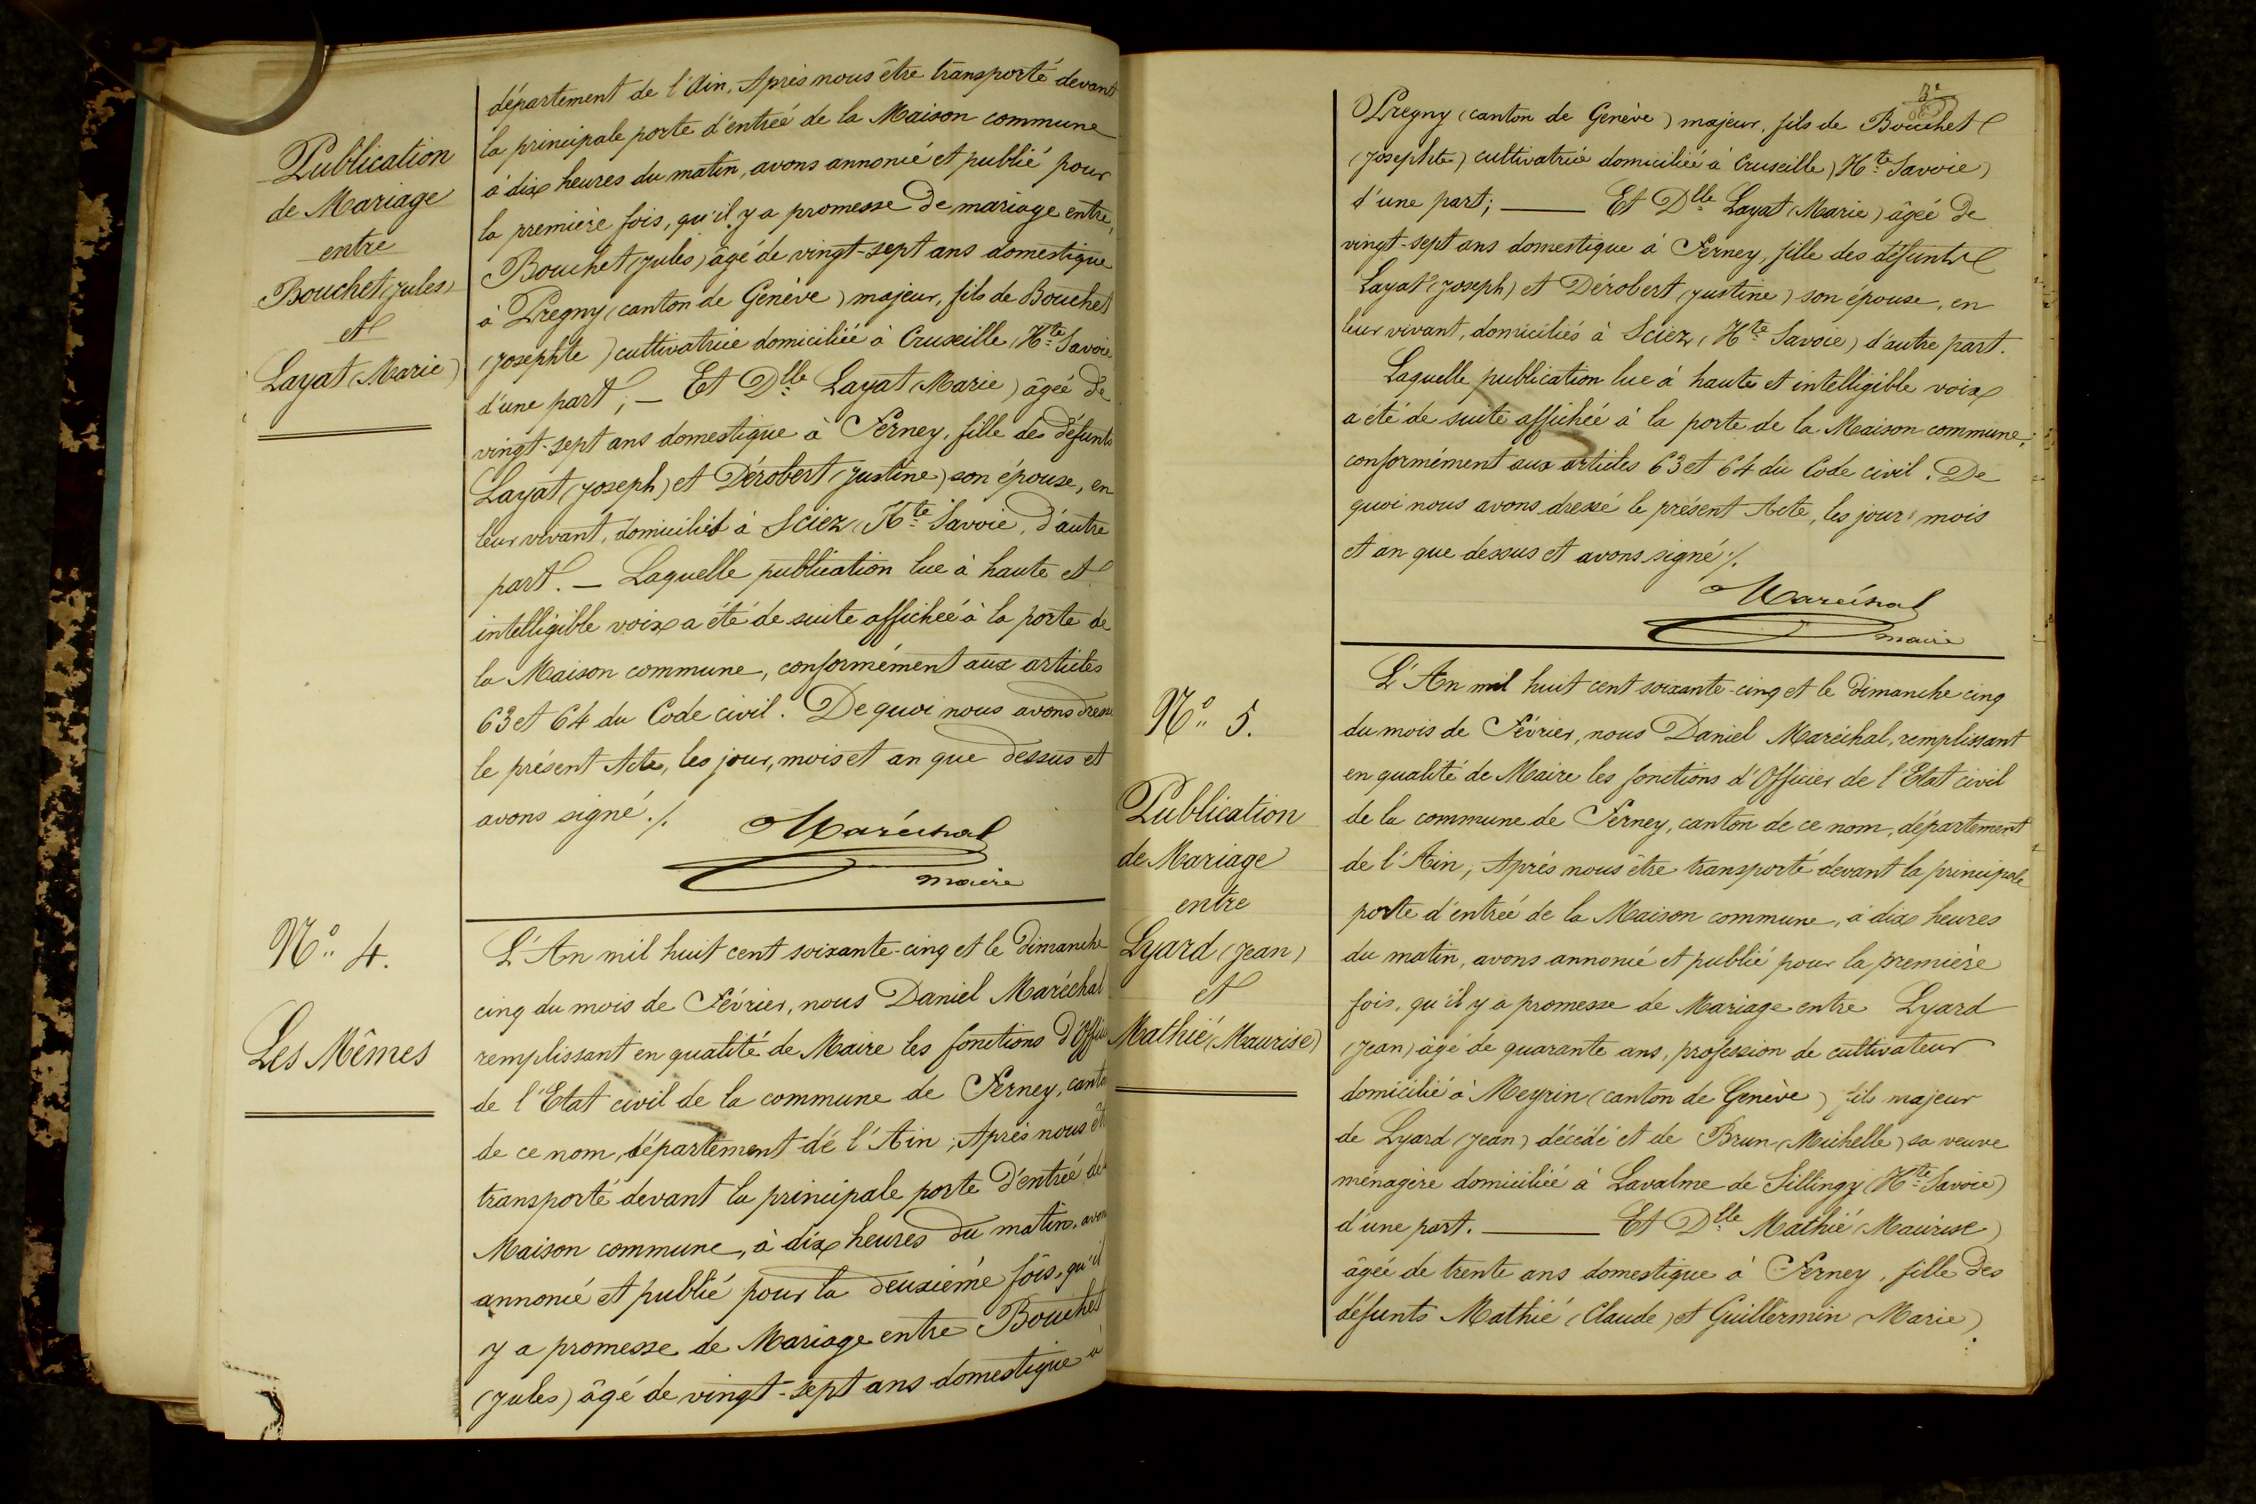 Publication
de Mariage
entre
Bouchet (Jules)
et
Layat (Marie)
département de l'Ain, Après nous être transporté devant
la principale porte d'entrée de la Maison commune
à dix heures du matin, avons annoncé et publié pour
la première fois, qu'il y a promesse de mariage entre,
Bouchet (Jules) âgé de vingt-sept ans domestique
à Pregny (canton de Genève) majeur, fils de Bouchet
(Josephte) cultivatrice domiciliée à Cruseille (Hte Savoie
d'une part; — Et Dlle Layat (Marie) âgée de
vingt-sept ans domestique à Ferney, fille des défunts
Layat (Joseph) et Dérobert (Justine) son épouse, en
leur vivant, domiciliés à Sciez (Hte Savoie, d'autre
part. — Laquelle publication lue à haute et
intelligible voix a été de suite affichée à la porte de
la Maison commune, conformément aux articles
63 et 64 du Code civil. De quoi nous avons dressé
le présent Acte, les jour, mois et an que dessus et
avons signé ./.
Maréchal
maire
No 4.
Les Mêmes
L'An mil huit cent soixante-cinq et le Dimanche
cinq du mois de Février, nous Daniel Maréchal
remplissant en qualité de Maire les fonctions d'Offici
de l'Etat civil de la commune de Ferney, canto
de ce nom, département de l'Ain; Après nous êt
transporté devant la principale porte d'entrée de
Maison commune, à dix heures du matin, avon
annoncé et publié pour la deuxième fois, qu'il
y a promesse de Mariage entre Bouchet
(Jules) âgé de vingt-sept ans domestique à
3e
Pregny (canton de Genève) majeur, fils de Bouchet
(Josephte) cultivatrice domiciliée à Cruseille) Hte Savoie)
d'une part; — Et Dlle Layat (Marie) âgée de
vingt-sept ans domestique à Ferney, fille des défunts
Layat (Joseph) et Dérobert (Justine) son épouse, en
leur vivant, domiciliés à Sciez (Hte Savoie) d'autre part.
Laquelle publication lue à haute et intelligible voix
a été de suite affichée à la porte de la Maison commune,
conformément aux articles 63 et 64 du Code civil. De
quoi nous avons dressé le présent Acte, les jour, mois
et an que dessus et avons signé ./.
Maréchal
maire
No 5.
Publication
de Mariage
entre
Lyard (Jean)
et
Mathié (Maurise)
L'An mil huit cent soixante-cinq et le Dimanche cinq
du mois de Février, nous Daniel Maréchal, remplissant
en qualité de Maire les fonctions d'Officier de l'Etat civil
de la commune de Ferney, canton de ce nom, département
de l'Ain, Après nous être transporté devant la principale
porte d'entrée de la Maison commune, à dix heures
du matin, avons annoncé et publié pour la première
fois, qu'il y a promesse de Mariage entre Lyard
(Jean) âgé de quarante ans, profession de cultivateur
domicilié à Meyrin (canton de Genève) fils majeur
de Lyard (Jean) décédé et de Brun (Michelle) sa veuve
ménagère domiciliée à Lavalme de Sillingy (Hte Savoie)
d'une part. — Et Dlle Mathié (Maurise)
âgée de trente ans domestique à Ferney, fille des
défunts Mathié (Claude) et Guillermin (Marie)